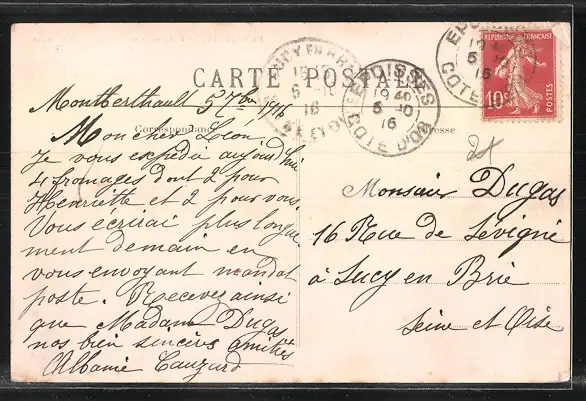 CARTE POSTALE
Correspondance
Adresse
Montberthault 5 7bre 1916
Mon cher Léon,
Je vous expédie aujourd'hui
4 fromages dont 2 pour
Henriette et 2 pour vous.
Vous écrirai plus longue
ment demain en
vous envoyant mandat
poste. Recevez ainsi
que Madame Dugas
nos bien sincères amitiés
Albanie Cauzard
Monsieur Dugas
16 Rue de Sévigné
à Sucy en Brie
Seine et Oise
EPOISSES
19 40
5
16
COTE D'OR
SUCY EN BRIE
6
16
RÉPUBLIQUE FRANÇAISE
10c
POSTES